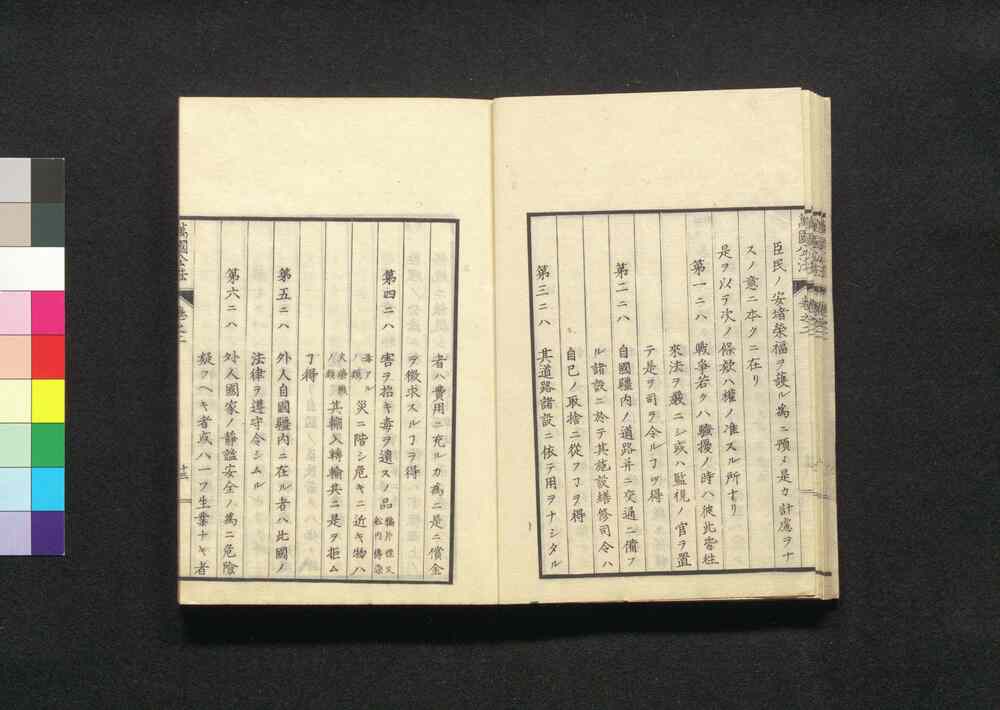 臣民ノ安堵榮福ヲ護ル為ニ預メ是カ計慮ヲナ
スノ意ニ本クニ在リ
是ヲ以テ次ノ條欵ハ權ノ准スル所ナリ
第一ニハ 戰爭若クハ騷擾ノ時ハ彼此皆往
來法ヲ嚴ニシ或ハ監視ノ官ヲ置
テ是ヲ司ラ令ルヿヲ得
第二ニハ 自國疆内ノ道路并ニ交通ニ備フ
ル諸設ニ於テ其施設繕修司令ハ
自己ノ取捨ニ從フヿヲ得
第三ニハ 其道路諸設ニ依テ用ヲナシタル
者ハ費用ニ充ルカ為ニ是ニ償金
ヲ徴求スルヿヲ得
第四ニハ 害ヲ招キ毒ヲ遺スノ品
災ニ階シ危キニ近キ物ハ
其輸入轉輸共ニ是ヲ拒ム
ヿ得
第五ニハ 外人自國疆内ニ在ル者ハ此國ノ
法律ヲ遵守令シムル
第六ニハ 外人國家ノ靜謐安全ノ為ニ危險
疑フヘキ者或ハ一ツ生業ナキ者
萬國公法
卷之二